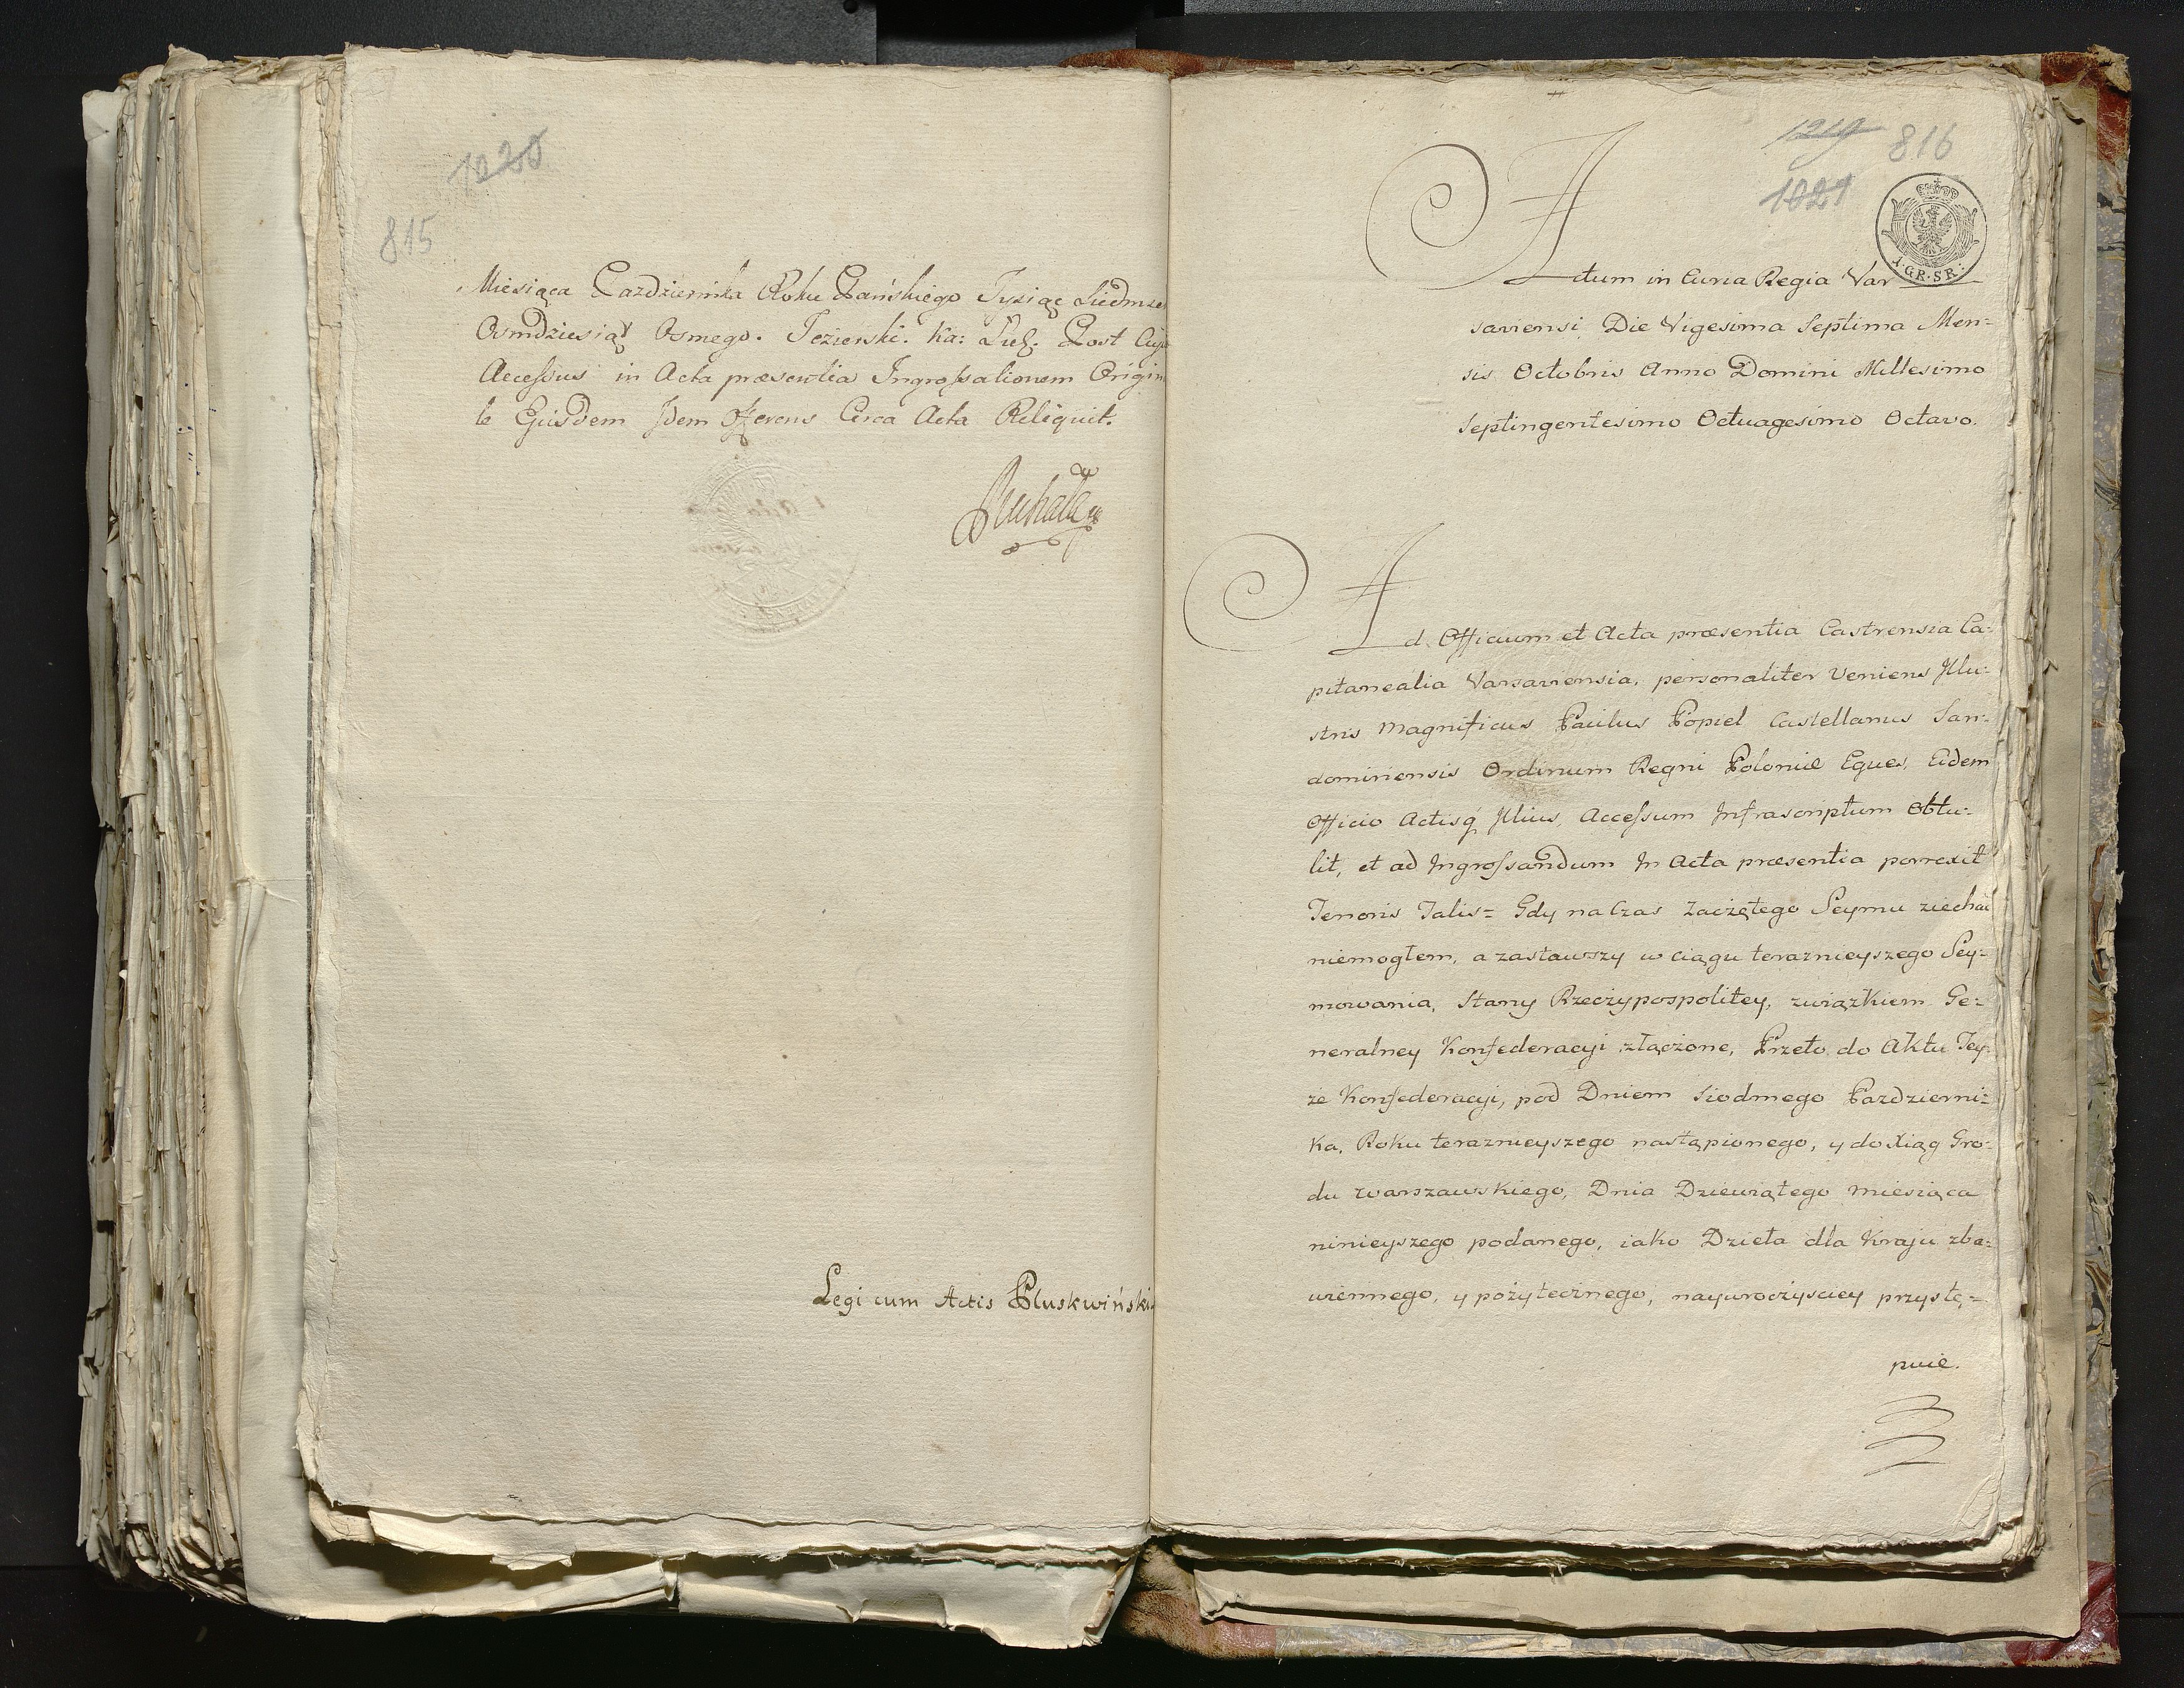 1020
815
Miesiąca Pazdziernika Roku Pańskiego Tysiąc Siedmse
Osmdziesiąt Osmego. Jezierski. Ka: Łuk. Post Cuj
Accessus in Acta præsentia Ingrossationem Origin
le Ejusdem Idem Offerens Circa Acta Reliquit.
Legi cum Actis Pluskwiński
1219 816
1021
1.GR.SR:
Actum in Curia Regia Var
saviensi Die Vigesima Septima Men=
sis Octobris Anno Domini Millesimo
Septingentesimo Octuagesimo Octavo.
Ad Officium et Acta præsentia Castrensia Ca=
pitanealia Varsaviensia, personaliter Veniens Illu=
stris Magnificus Paulus Popiel Castellanus San=
domiriensis Ordinum Regni Poloniæ Eques, Eidem
Officio Actisq́ Illius, Accessum Infrascriptum Obtu=
lit, et ad Ingrossandum In Acta præsentia porrexit
Tenoris Talis= Gdy na Czas Zaczętego Seymu ziechać
niemogłem, a zastawszy w ciągu teraznieyszego Sey=
mowania, Stany Rzeczypospolitey, związkiem Ge=
neralney Konfederacyi złączone, Przeto do Aktu Tey=
że Konfederacyi, pod Dniem Siodmego Pazdzierni=
ka, Roku teraznieyszego nastąpionego, y do Xiąg Gro=
du warszawskiego, Dnia Dziewiątego miesiąca
ninieyszego podanego, iako Dzieła dla Kraju zba=
wiennego, y pożytecznego, nayuroczyściey przystę=
puie.